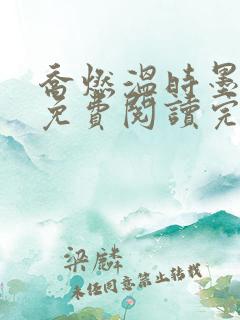 喬燃溫時墨
免費閱讀完
梁麟
未经同意禁止转载